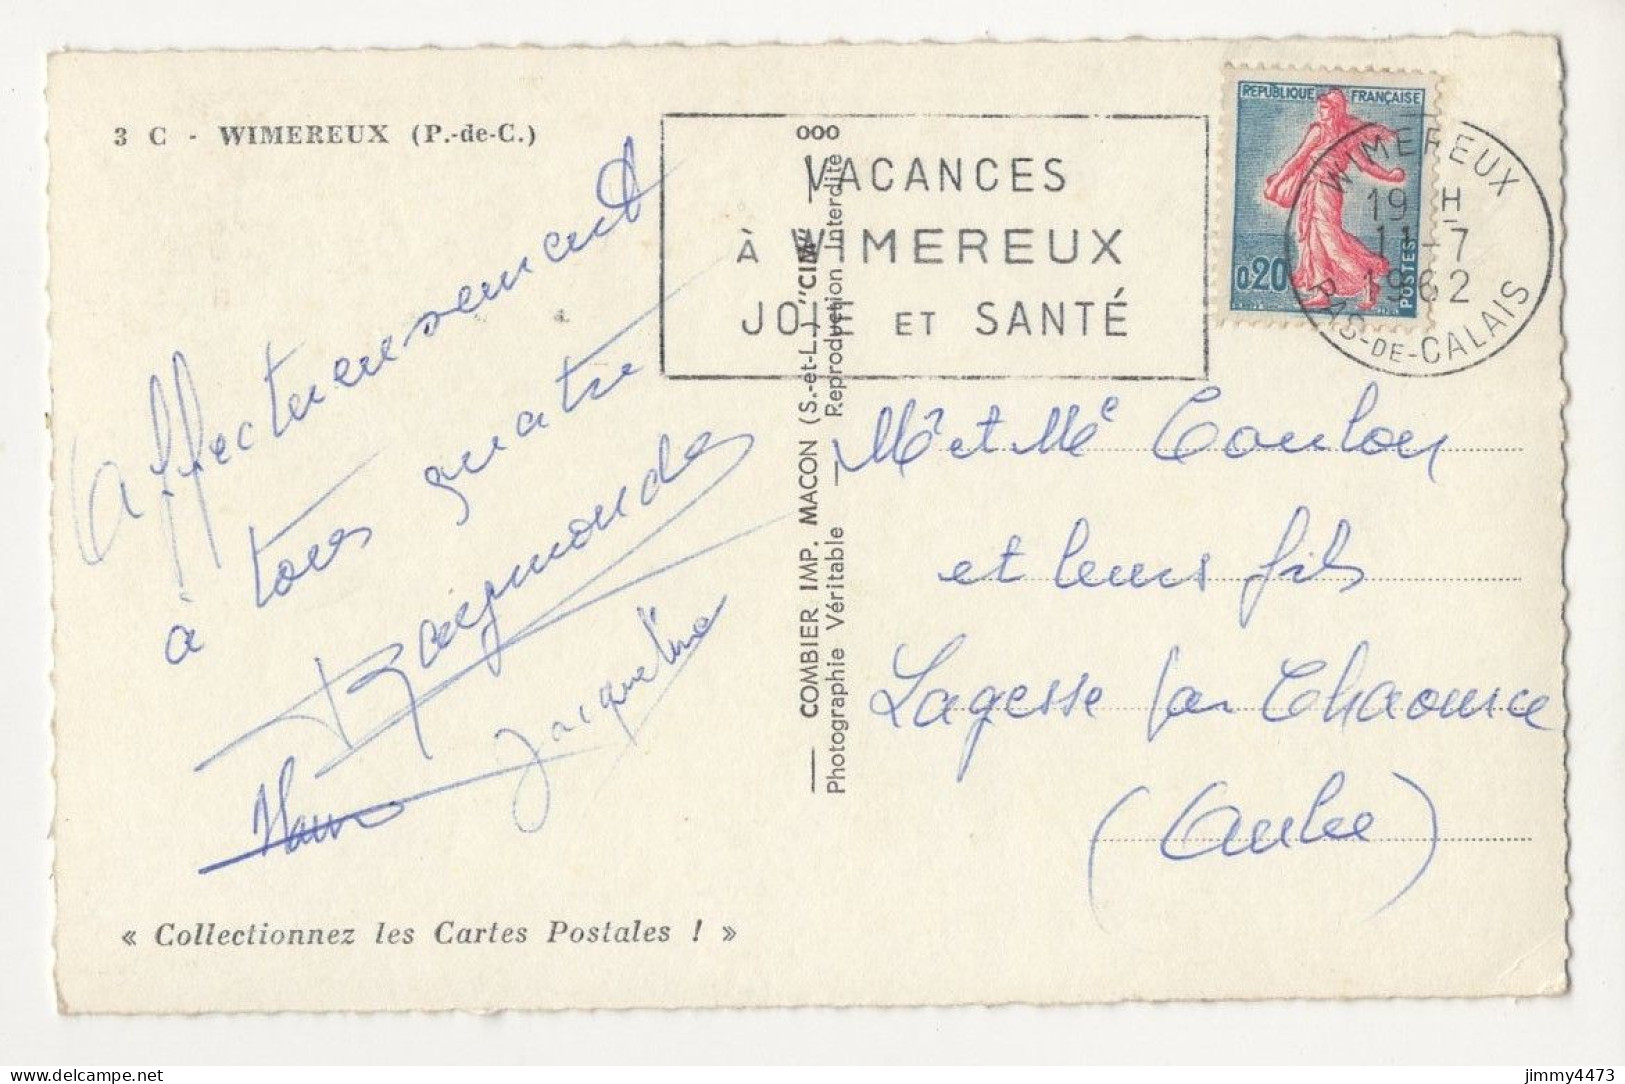 3 C - WIMEREUX (P.-de-C.)
Affectueusement
à tous quatre
Raymonde
Jacqueline
« Collectionnez les Cartes Postales ! »
COMBIER IMP. MACON (S.-et-L.) "CIM"
Photographie Véritable — Reproduction Interdite
VACANCES
À WIMEREUX
JOIE ET SANTÉ
REPUBLIQUE FRANÇAISE
0,20
POSTES
WIMEREUX
19 H
11-7
1962
PAS-DE-CALAIS
Mr et Me Coulon
et leurs fils
Lagesse par Chaource
(Aube)
jimmy4473